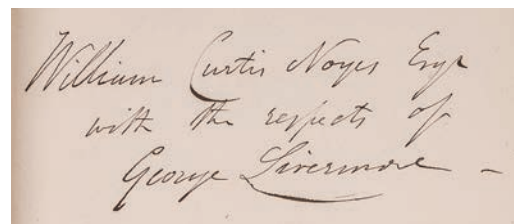 William Curtis Noyes Esqr
with the respects of
George Livermore –